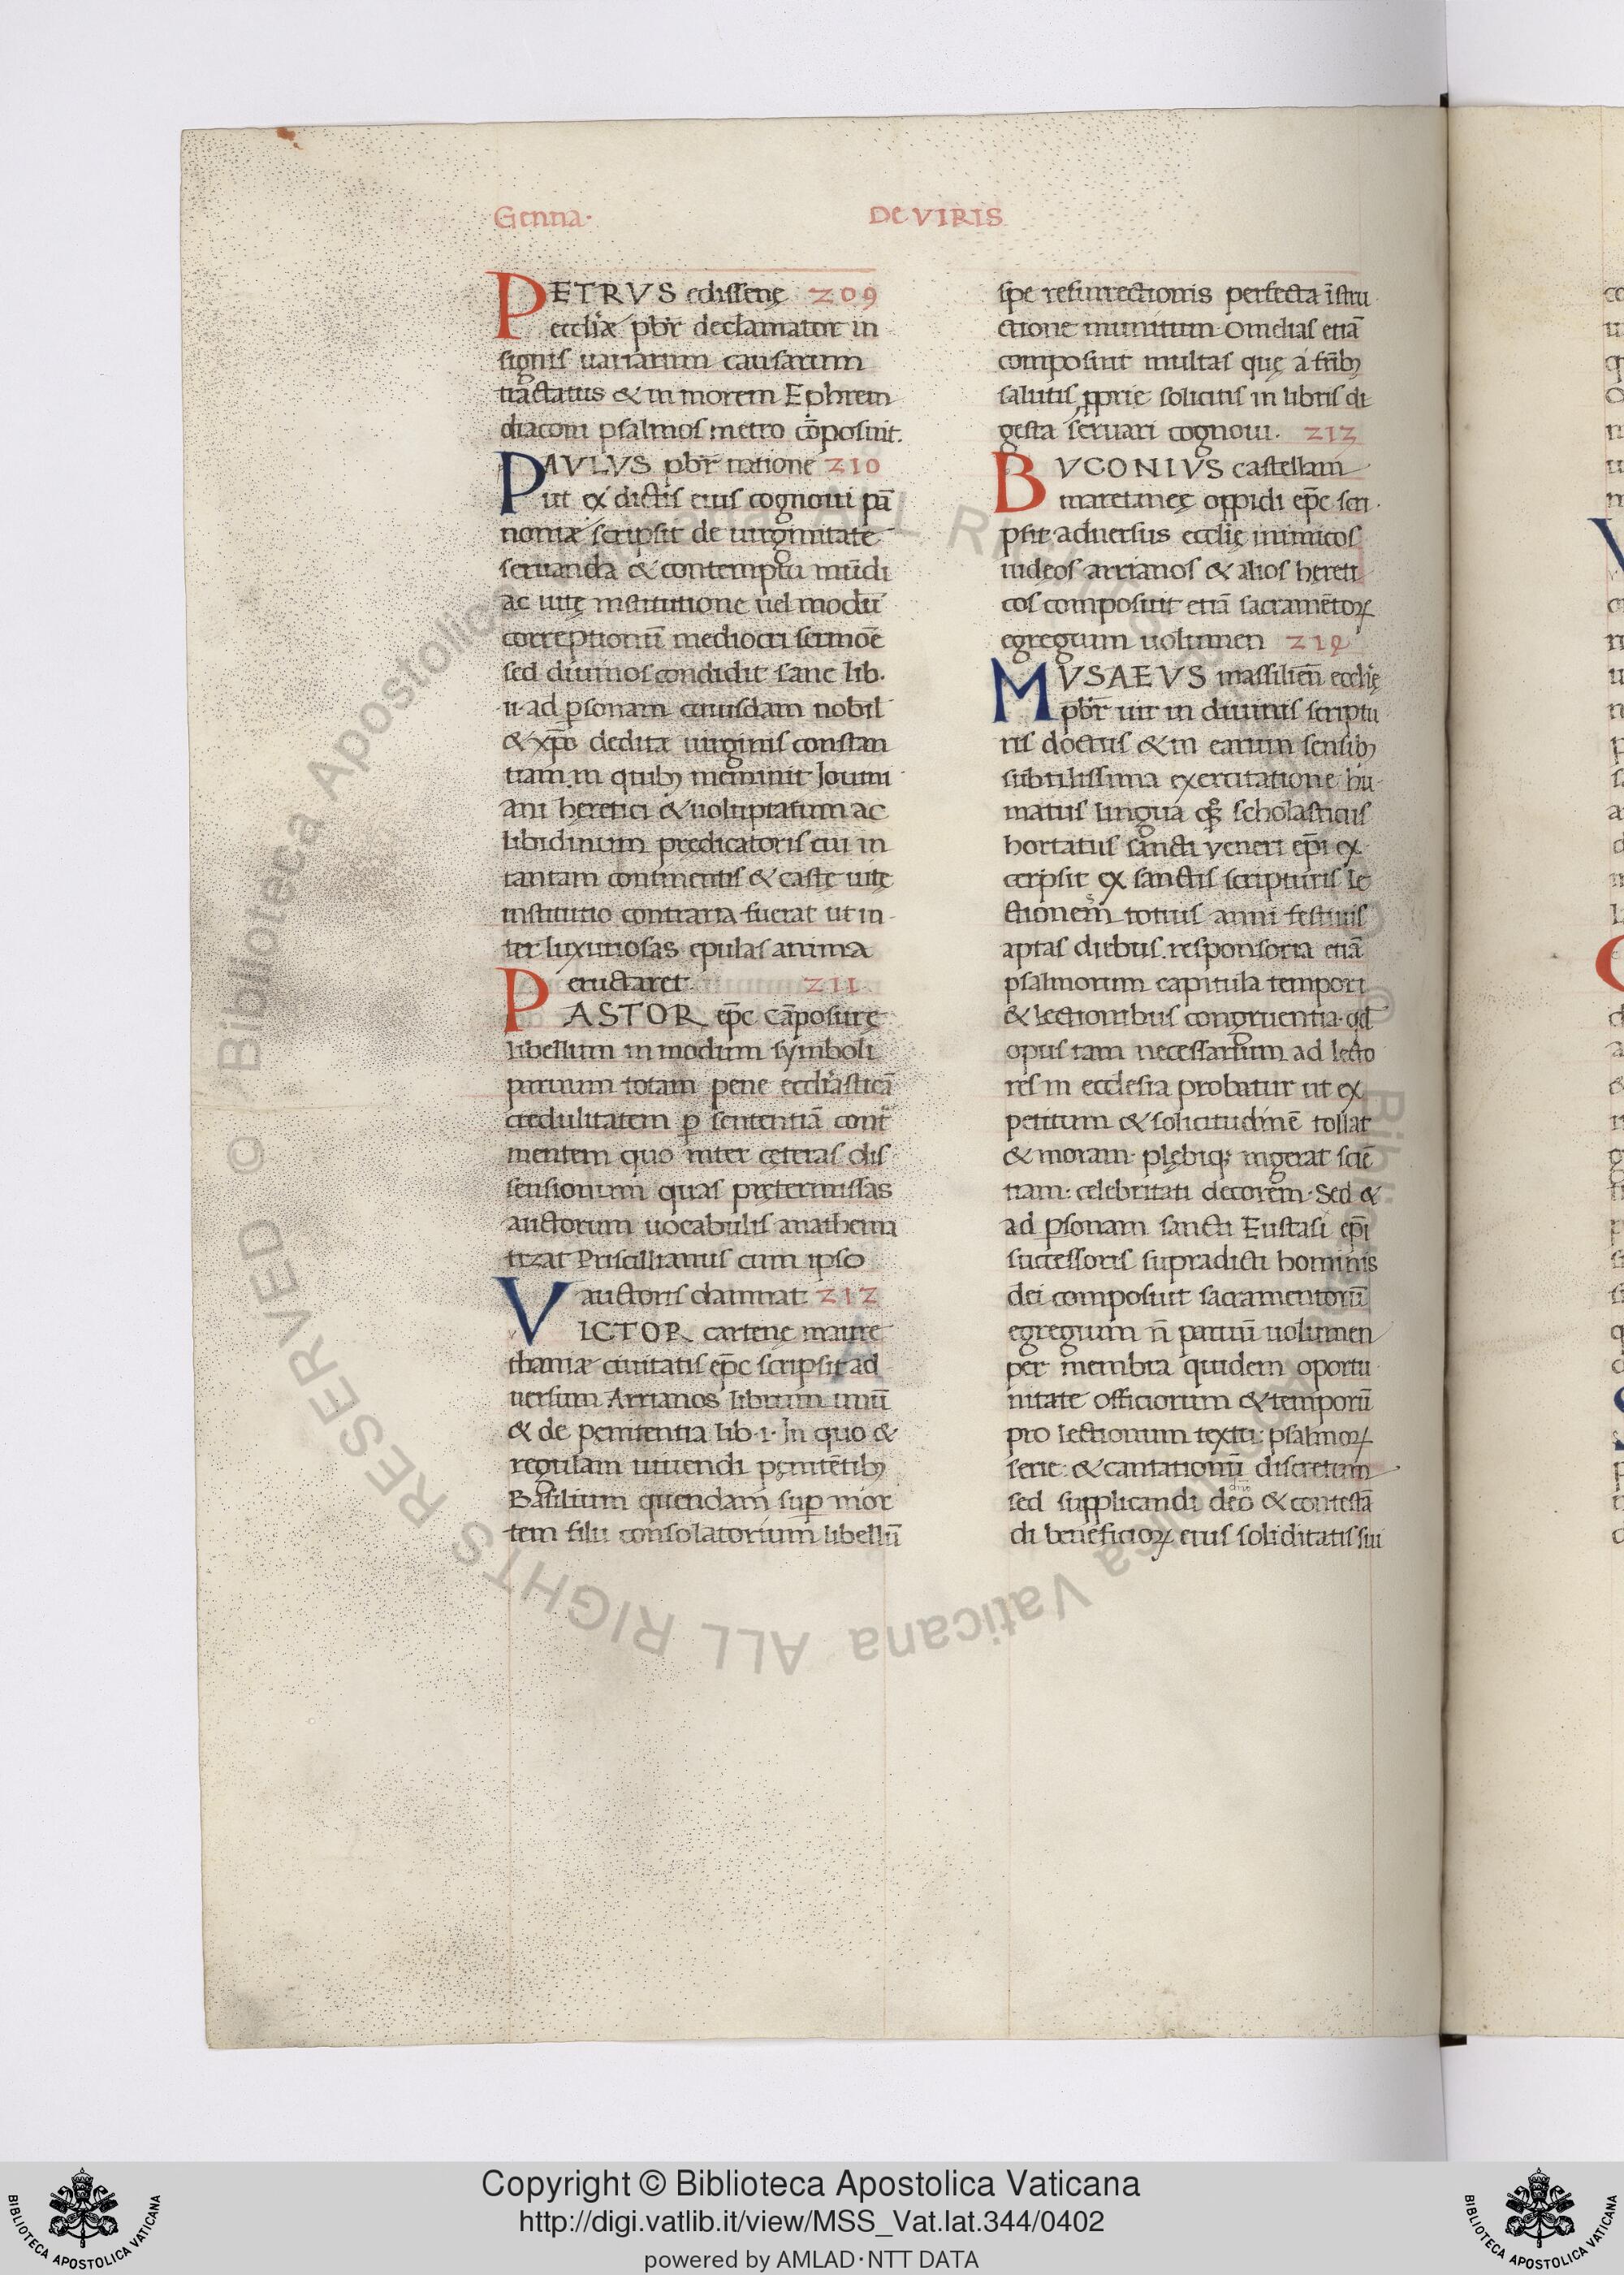 Genna·
De VIRIS
PETRVS edissenę 209
eccl̄iæ pb̄r declamator in
signis uariarum causarum
tractatus & in morem Ephrem
diaconi psalmos metro cōposuit.
PAVLVS pb̄r natione 210
ut ex dictis eius cognoui pā
noniæ scripsit de uirginitate
seruanda & contemptu mūdi
ac uitę institutione uel modū
correptionū mediocri sermoē
sed diuinos condidit sane lib·
ii· ad p̱sonam cuiusdam nobil
& xp̄o deditæ uirginis constan
tiam in quibꝫ meminit Jouini
ani heretici & uoluptatum ac
libidinum predicatoris cui in
tantam continentis & castę uitę
institutio contraria fuerat ut in
ter luxuriosas epulas anima
eructaret 211
PASTOR ep̄c cāposure
libellum in modum symboli
paruum totam pene eccl̄iasticā
credulitatem ꝑ sententiā conti
mentem quo inter cęteras dis
sensionum quas pretermissas
auctorum uocabulis anathema
tizat Priscillianus cum ipso
auctoris damnat 212
VICTOR cartenę maure
thaniæ ciuitatis ep̄c scripsit ad
uersum Arrianos librum unū
& de penitentia lib·1· In quo &
regulam uiuendi pęnitētibꝫ
Basilium quendam suꝑ mor
tem filii consolatorium libellū
spe resurrectionis perfecta īstru
ctione munitum Omelias etiā
composuit multas quę a fr̄ibꝫ
salutis ꝓprię solicitis in libris di
gesta seruari cognoui· 213
BVCONIVS castellam
maretanęę oppidi ep̄c scri
psit aduersus eccl̄ię inimicos
iudeos arrianos & alios hereti
cos composuit etiā sacramētoꝝ
egregium uolumen 214
MVSAEVS massiliēn eccl̄ię
pb̄r uir in diuinis scriptu
ris doctus & in earum sensibꝫ
subtilissima exercitatione hu
matus lingua qꝫ scholasticus
hortatus sancti veneri ep̄i ex
cerpsit ex sanctis scripturis le
ctionem totius anni festiuis
aptas diebus. responsoria etiā
psalmorum capitula tempori
& lectionibus congruentia· qd̄
opus tam necessarium ad lecto
res in ecclesia probatur ut ex
petitum & solicitudinē tollat
& moram· plębiqꝫ ingerat sciē
tiam· celebritati decorem· Sed &
ad p̱sonam sancti Eustasi ep̄i
successoris supradicti hominis
dei composuit sacramentorū
egregium n̄ paruū uolumen
per membra quidem oportu
nitate officiorum & temporū
pro lectionum textu· psalmoꝝ
serie· & cantationū discretum
sed supplicandi deo & contestā
di beneficioꝝ eius soliditatis sui
Copyright © Biblioteca Apostolica Vaticana
http://digi.vatlib.it/view/MSS_Vat.lat.344/0402
powered by AMLAD·NTT DATA
BIBLIOTECA APOSTOLICA VATICANA
BIBLIOTECA APOSTOLICA VATICANA
© Biblioteca Apostolica Vaticana ALL RIGHTS RESERVED